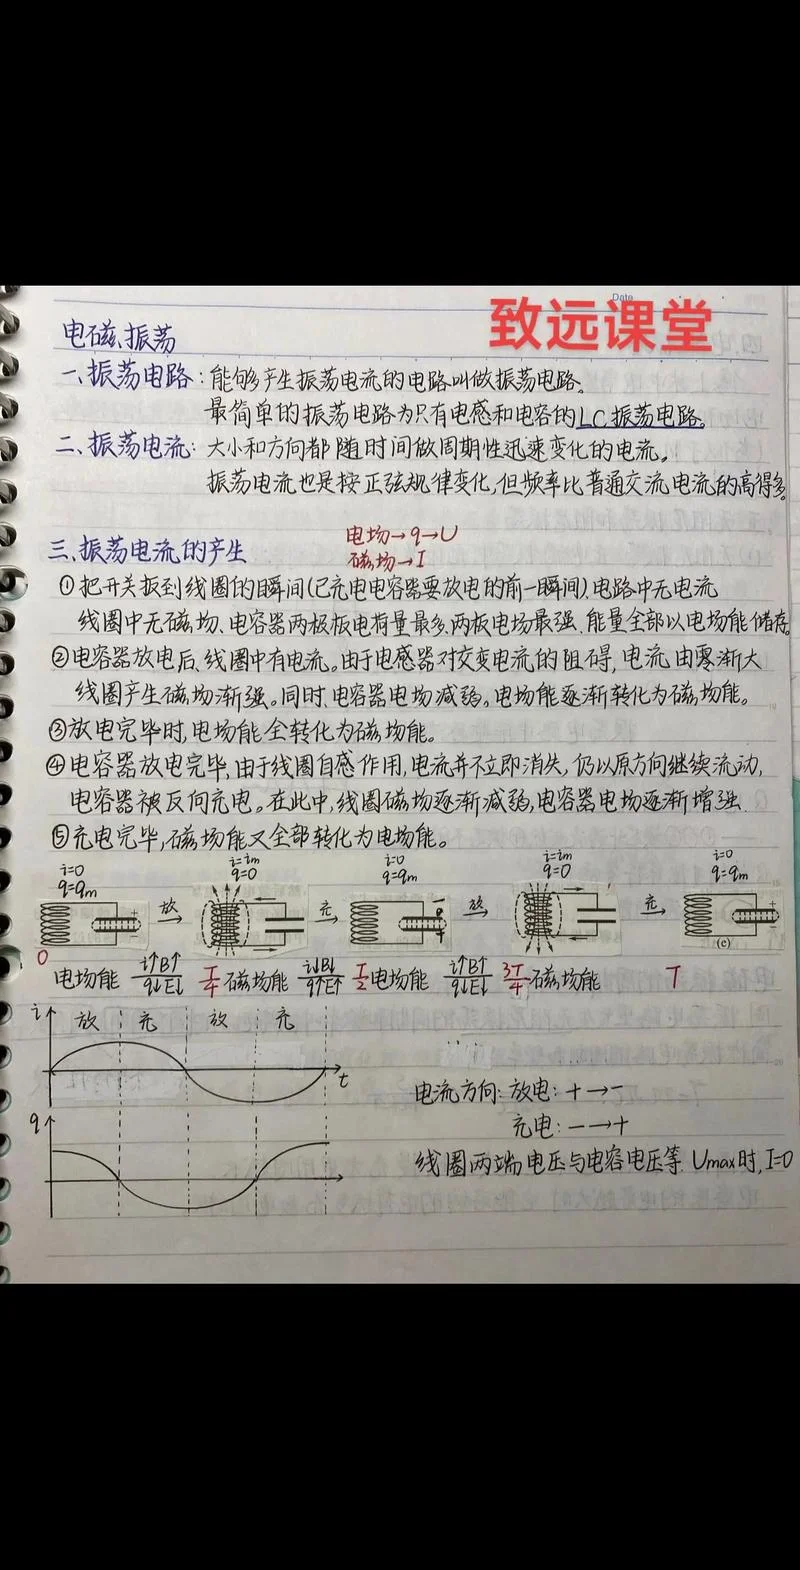 Date
致远课堂
电磁振荡
一、振荡电路：能够产生振荡电流的电路叫做振荡电路。
最简单的振荡电路为只有电感和电容的LC振荡电路。
二、振荡电流：大小和方向都随时间做周期性迅速变化的电流。
振荡电流也是按正弦规律变化，但频率比普通交流电流的高得多。
三、振荡电流的产生
电场→q→U
磁场→I
①把开关扳到线圈的瞬间(已充电电容器要放电的前一瞬间)、电路中无电流
线圈中无磁场、电容器两极板电荷量最多、两板电场最强、能量全部以电场能储存。
②电容器放电后、线圈中有电流。由于电感器对交变电流的阻碍，电流由零渐大
线圈产生磁场渐强。同时、电容器电场减弱。电场能逐渐转化为磁场能。
③放电完毕时，电场能全转化为磁场能。
④电容器放电完毕，由于线圈自感作用，电流并不立即消失，仍以原方向继续流动，
电容器被反向充电。在此中，线圈磁场逐渐减弱，电容器电场逐渐增强.
⑤充电完毕，磁场能又全部转化为电场能。
i=0 i=im i=0 i=im i=0
q=qm q=0 q=qm q=0 q=qm
放→ 充→ 放→ 充→
(c)
0
电场能 i↑B↑/q↓E↓ T/4 磁场能 i↓B↓/q↑E↑ T/2 电场能 i↑B↑/q↓E↓ 3T/4 磁场能 T
i 放 充 放 充
t
q
电流方向：放电：+→-
充电：-→+
线圈两端电压与电容电压等. Umax时，I=0